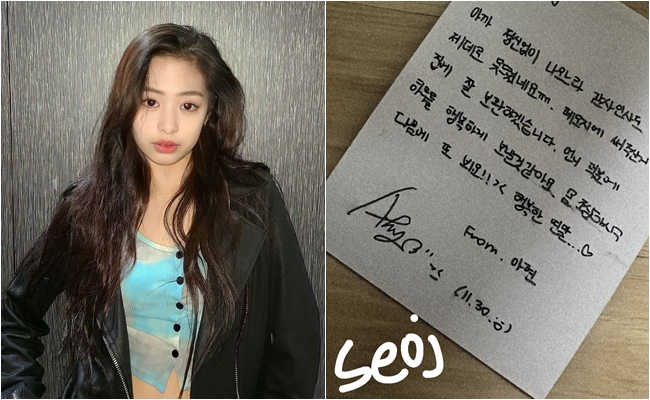 아까 정신없이 나오느라 감사인사도
제대로 못했네요ㅠㅠ. 메모지에 써주신거
집에 잘 보관하겠습니다. 언니 덕분에
하루를 행복하게 보낼것같아요 몸 조심하시구
다음에 또 봐요!! >< 행복한 연말...♡
From. 아현
(11.30.
seoj